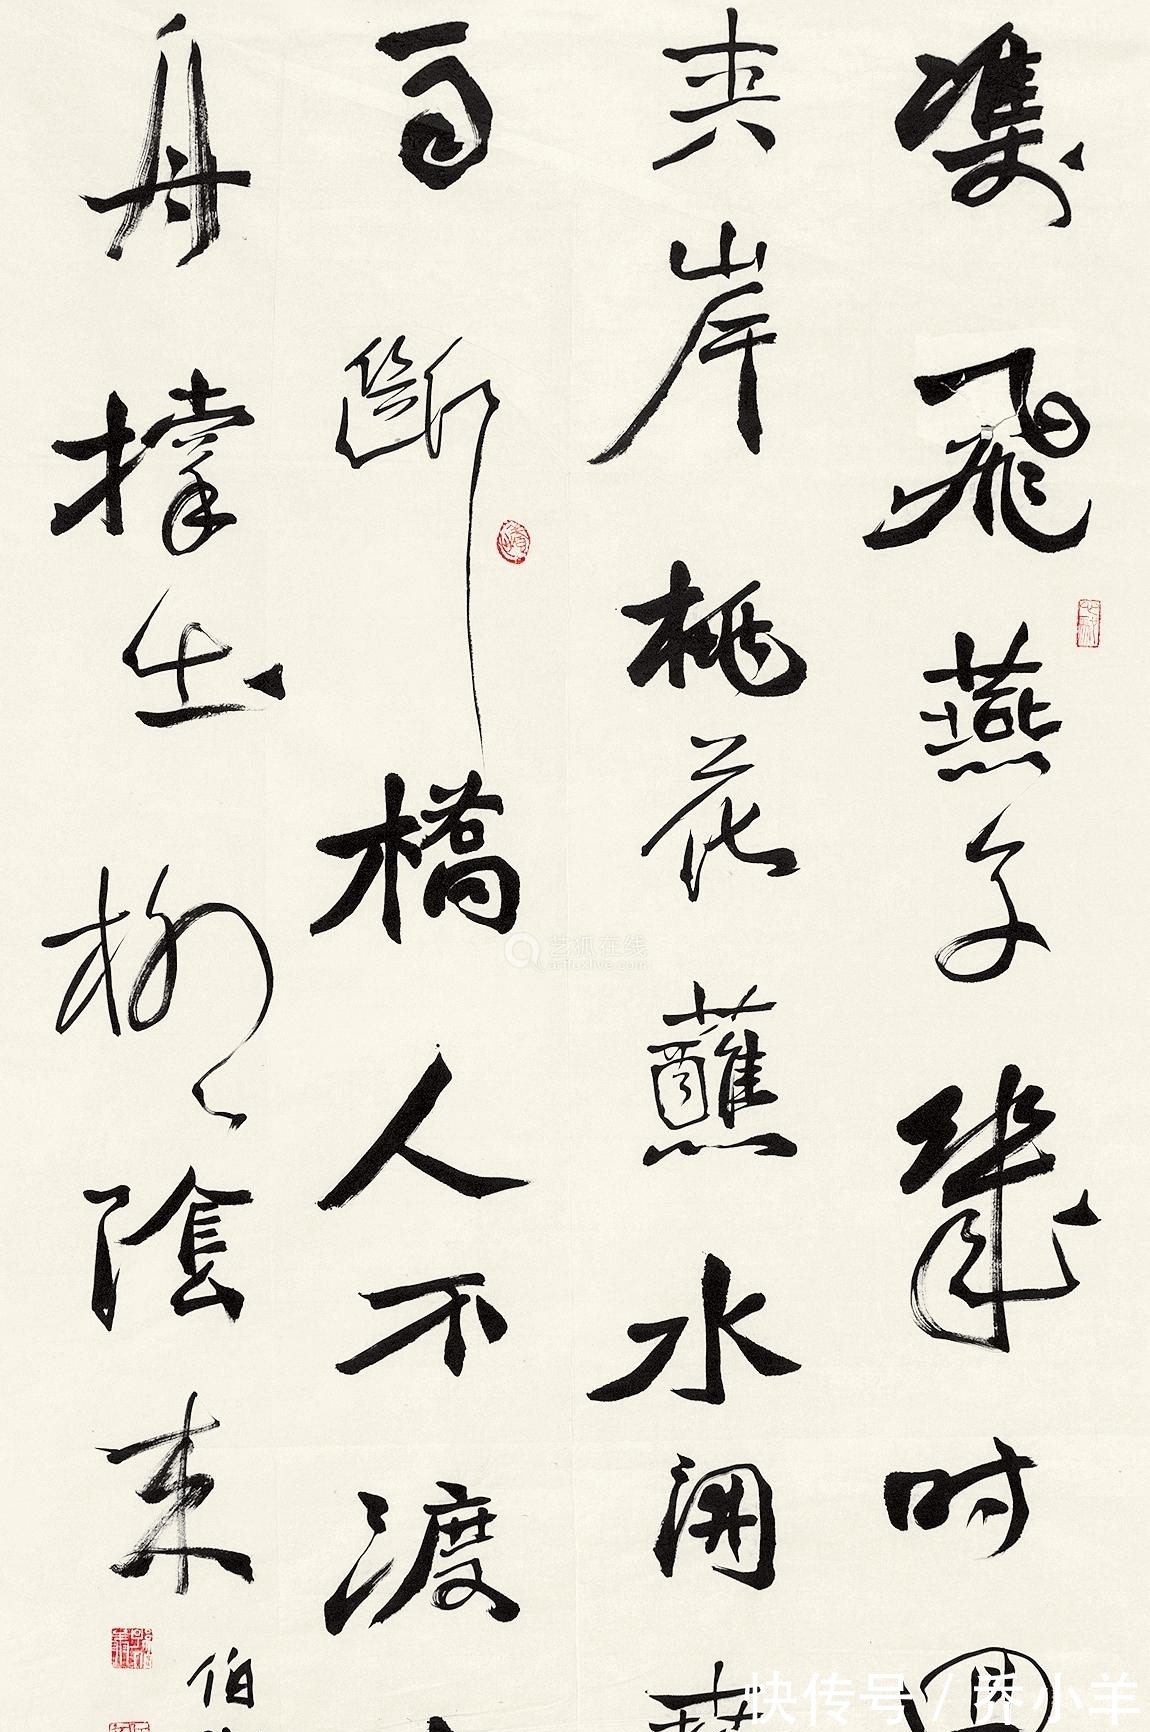 雙飛燕子幾時回
夾岸桃花蘸水開春
雨斷橋人不渡
舟撐出柳陰來
伯
艺狐在线
artfoxlive.com
快传号 / 乔小羊